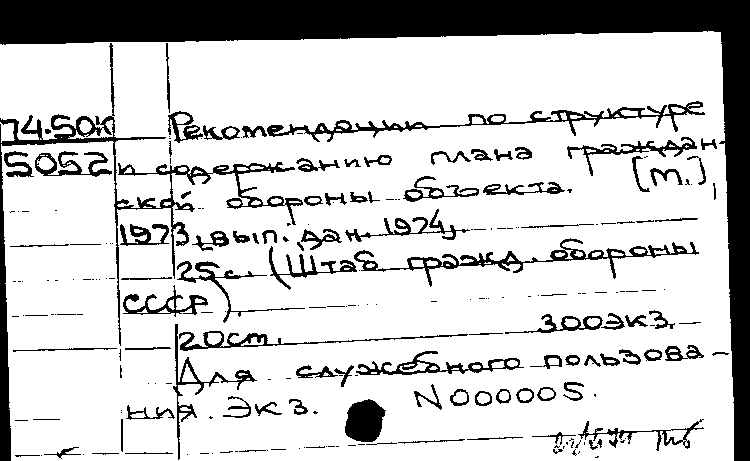 74.50К Рекомендации по структуре
5052 и содержанию плана граждан-
ской обороны объекта. [М.],
1973, [вып. дан. 1974].
25с. (Штаб гражд. обороны
СССР).
20см. 300экз.
Для служебного пользова-
ния. Экз. N000005.